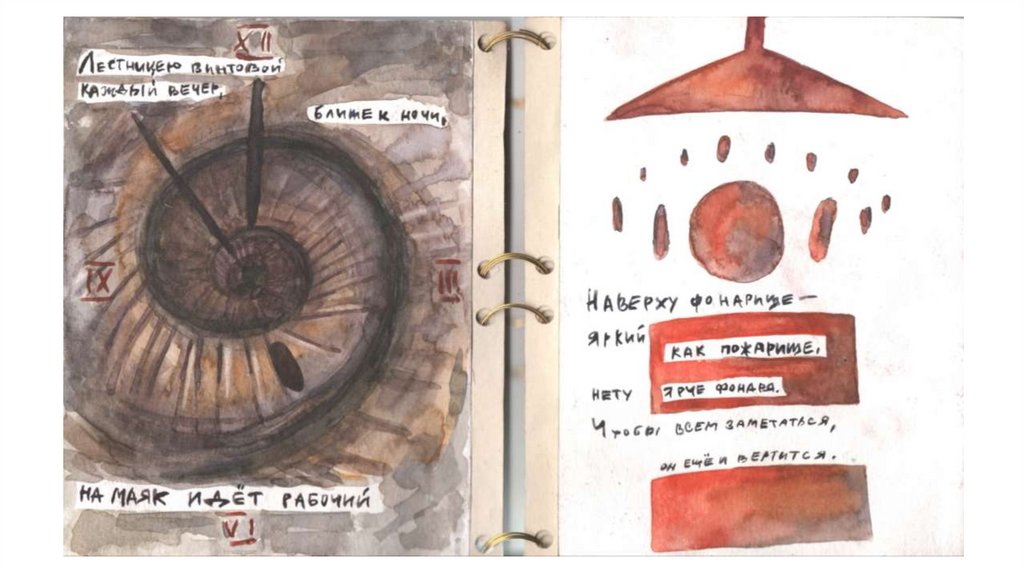 XII
Лестницею винтовой
каждый вечер,
ближе к ночи,
IX
III
на маяк идёт рабочий
VI
Наверху фонарище —
яркий
как пожарище,
нету ярче фонаря.
Чтобы всем заметаться,
он ещё и вертится.